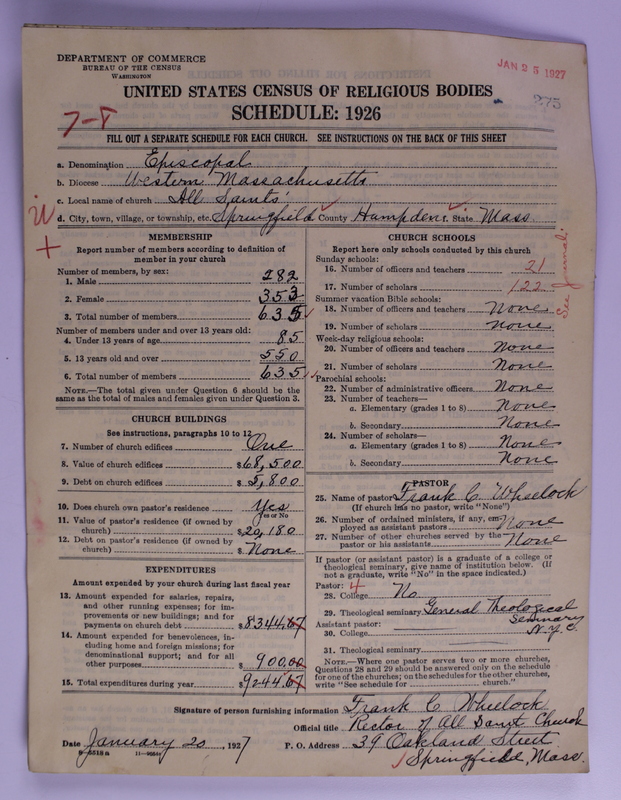 DEPARTMENT OF COMMERCE
BUREAU OF THE CENSUS
WASHINGTON
JAN 25 1927
275
UNITED STATES CENSUS OF RELIGIOUS BODIES
SCHEDULE: 1926
7-8
FILL OUT A SEPARATE SCHEDULE FOR EACH CHURCH. SEE INSTRUCTIONS ON THE BACK OF THIS SHEET
a. Denomination Episcopal
b. Diocese Western Massachusetts
c. Local name of church All Saints'
d. City, town, village, or township, etc. Springfield County Hampden State Mass.
MEMBERSHIP
Report number of members according to definition of
member in your church
Number of members, by sex:
1. Male 282
2. Female 353
3. Total number of members 635
Number of members under and over 13 years old:
4. Under 13 years of age 85
5. 13 years old and over 550
6. Total number of members 635
NOTE.—The total given under Question 6 should be the
same as the total of males and females given under Question 3.
CHURCH BUILDINGS
See instructions, paragraphs 10 to 12
7. Number of church edifices One
8. Value of church edifices $68,500
9. Debt on church edifices $5,800
10. Does church own pastor's residence Yes
Yes or No
11. Value of pastor's residence (if owned by
church) $20,180
12. Debt on pastor's residence (if owned by
church) $ None
EXPENDITURES
Amount expended by your church during last fiscal year
13. Amount expended for salaries, repairs,
and other running expenses; for im-
provements or new buildings; and for
payments on church debt $8344.67
14. Amount expended for benevolences, in-
cluding home and foreign missions; for
denominational support; and for all
other purposes $900.00
15. Total expenditures during year $9244.67
CHURCH SCHOOLS
Report here only schools conducted by this church
Sunday schools:
16. Number of officers and teachers 21
17. Number of scholars 122
See Journal.
Summer vacation Bible schools:
18. Number of officers and teachers None
19. Number of scholars None
Week-day religious schools:
20. Number of officers and teachers None
21. Number of scholars None
Parochial schools:
22. Number of administrative officers None
23. Number of teachers—
a. Elementary (grades 1 to 8) None
b. Secondary None
24. Number of scholars—
a. Elementary (grades 1 to 8) None
b. Secondary None
PASTOR
25. Name of pastor Frank C. Wheelock
(If church has no pastor, write "None")
26. Number of ordained ministers, if any, em-
ployed as assistant pastors None
27. Number of other churches served by the
pastor or his assistants None
If pastor (or assistant pastor) is a graduate of a college or
theological seminary, give name of institution below. (If
not a graduate, write "No" in the space indicated.)
Pastor: 4
28. College No
29. Theological seminary General Theological
Seminary
N.Y.C.
Assistant pastor:
30. College
31. Theological seminary
NOTE.—Where one pastor serves two or more churches,
Questions 28 and 29 should be answered only on the schedule
for one of the churches; on the schedules for the other churches,
write "See schedule for church."
Signature of person furnishing information Frank C Wheelock
Official title Rector of All Saint Church
Date January 20, 1927 P. O. Address 39 Oakland Street
Springfield, Mass.